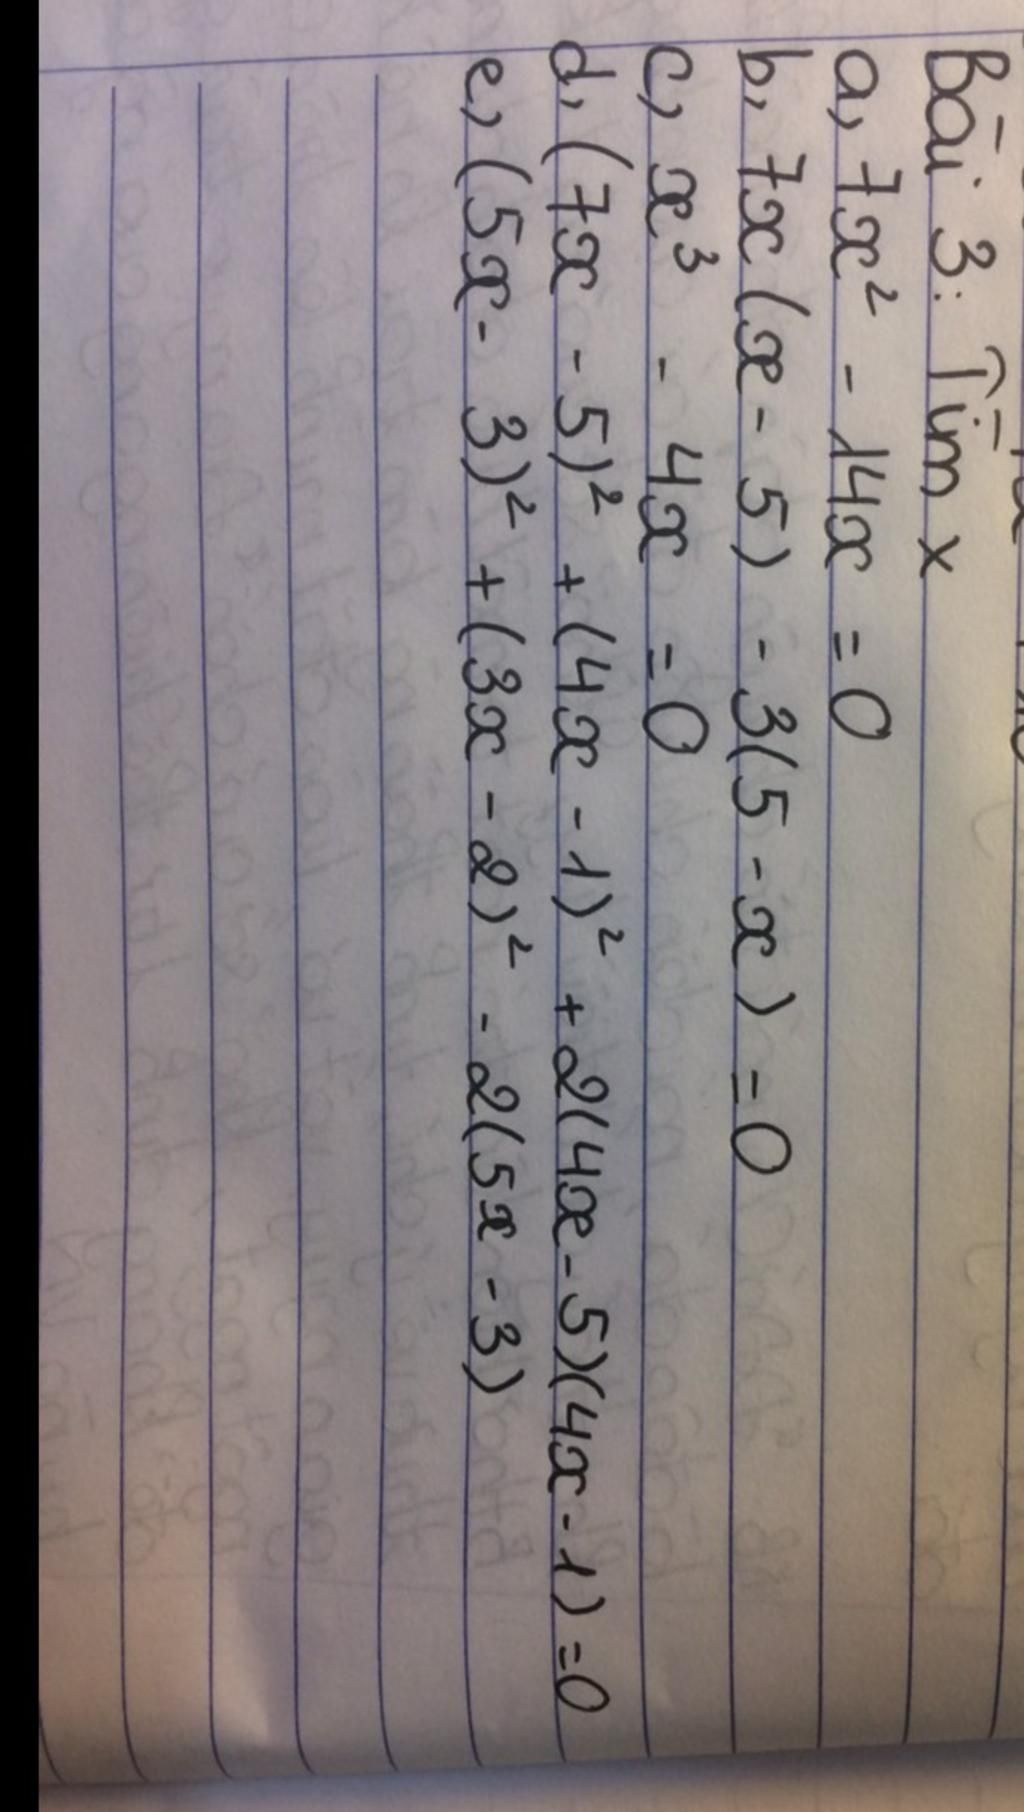 Bài 3: Tìm x
a, 7x² - 14x = 0
b, 7x(x - 5) - 3(5 - x) = 0
c, x³ - 4x = 0
d, (7x - 5)² + (4x - 1)² + 2(4x - 5)(4x - 1) = 0
e, (5x - 3)² + (3x - 2)² - 2(5x - 3)